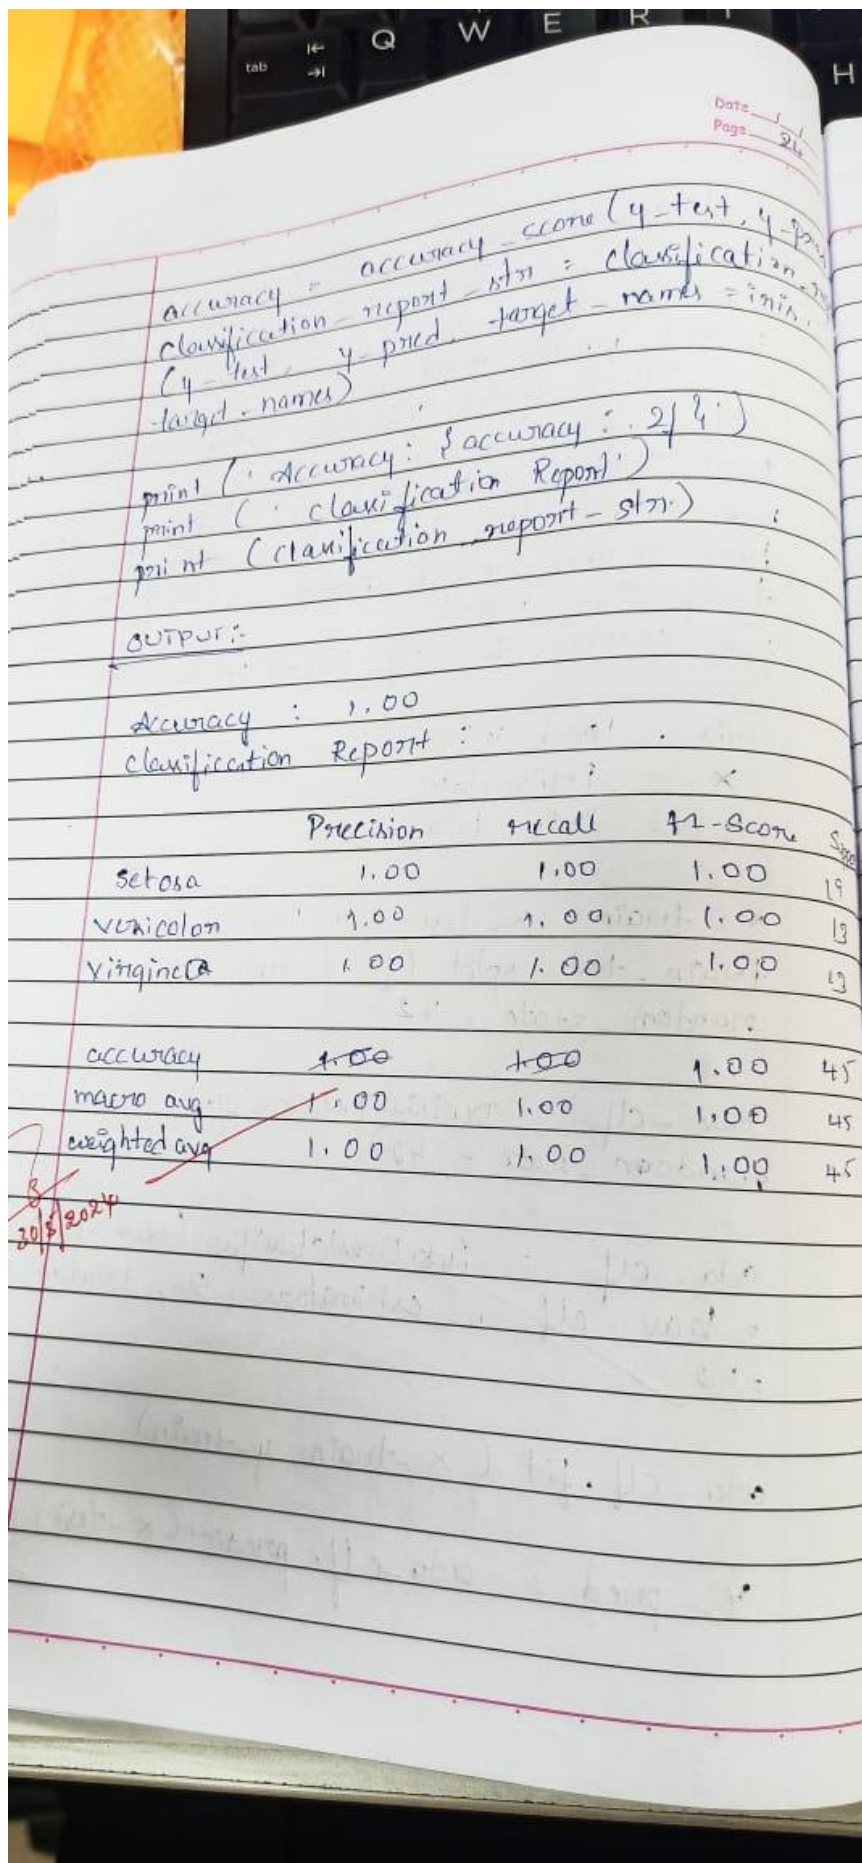 tab
Q
W
E
R
H
Date
Page 24
accuracy = accuracy_score (y-test, y-pred
classification_report_str = classification
(y-test, y-pred, target-names = iris.
target-names)
print (' Accuracy: {accuracy : .2f}')
print (' Classification Report:')
print (classification_report-str.)
OUTPUT:-
Accuracy : 1.00
Classification Report :
Precision recall f1-Score
Setosa 1.00 1.00 1.00 19
versicolor 1.00 1.00 1.00 13
virginica 1.00 1.00 1.00 13
accuracy 1.00 1.00 1.00 45
macro avg. 1.00 1.00 1.00 45
weighted avg 1.00 1.00 1.00 45